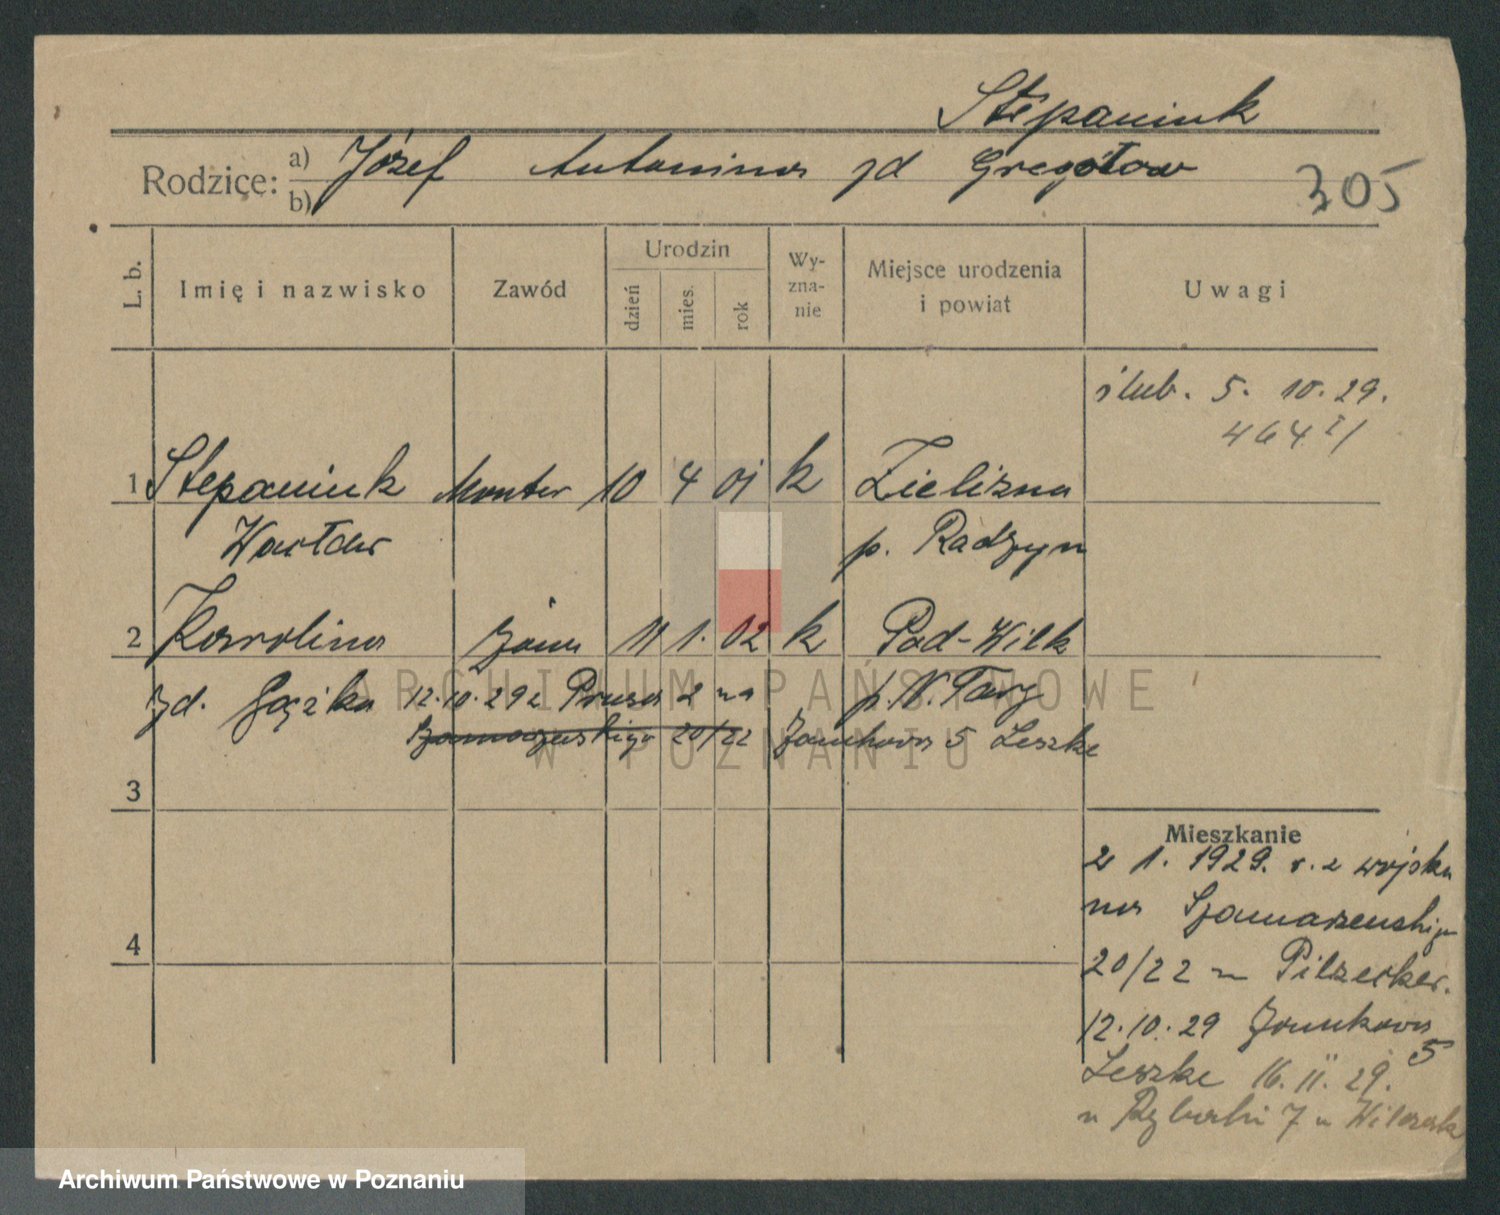 Stepaniuk
Rodzice: a) Józef Antonina zd Gregotow
b)
305
L. b. Imię i nazwisko Zawód Urodzin dzień mies. rok Wy-zna-nie Miejsce urodzenia i powiat Uwagi
ślub. 5. 10. 29.
464 I/
1 Stepaniuk Monter 10 4 01 k Zielizna
Wacław p. Radzyn
2 Karolina żona 11 1. 02 k Pod-Wilk
zd. 12.10.29 z Prusa 2 na p. N. Targ
Szamarzewskiego 20/22 Zamkowa 5 Leszke
3
Mieszkanie
2 1. 1929. r. z wojska
na Szamarzewskiego
20/22 u
4
12.10.29 Zamkowa 5
Leszke 16.11.29.
7 u Wilczak
ARCHIWUM PAŃSTWOWE
W POZNANIU
Archiwum Państwowe w Poznaniu